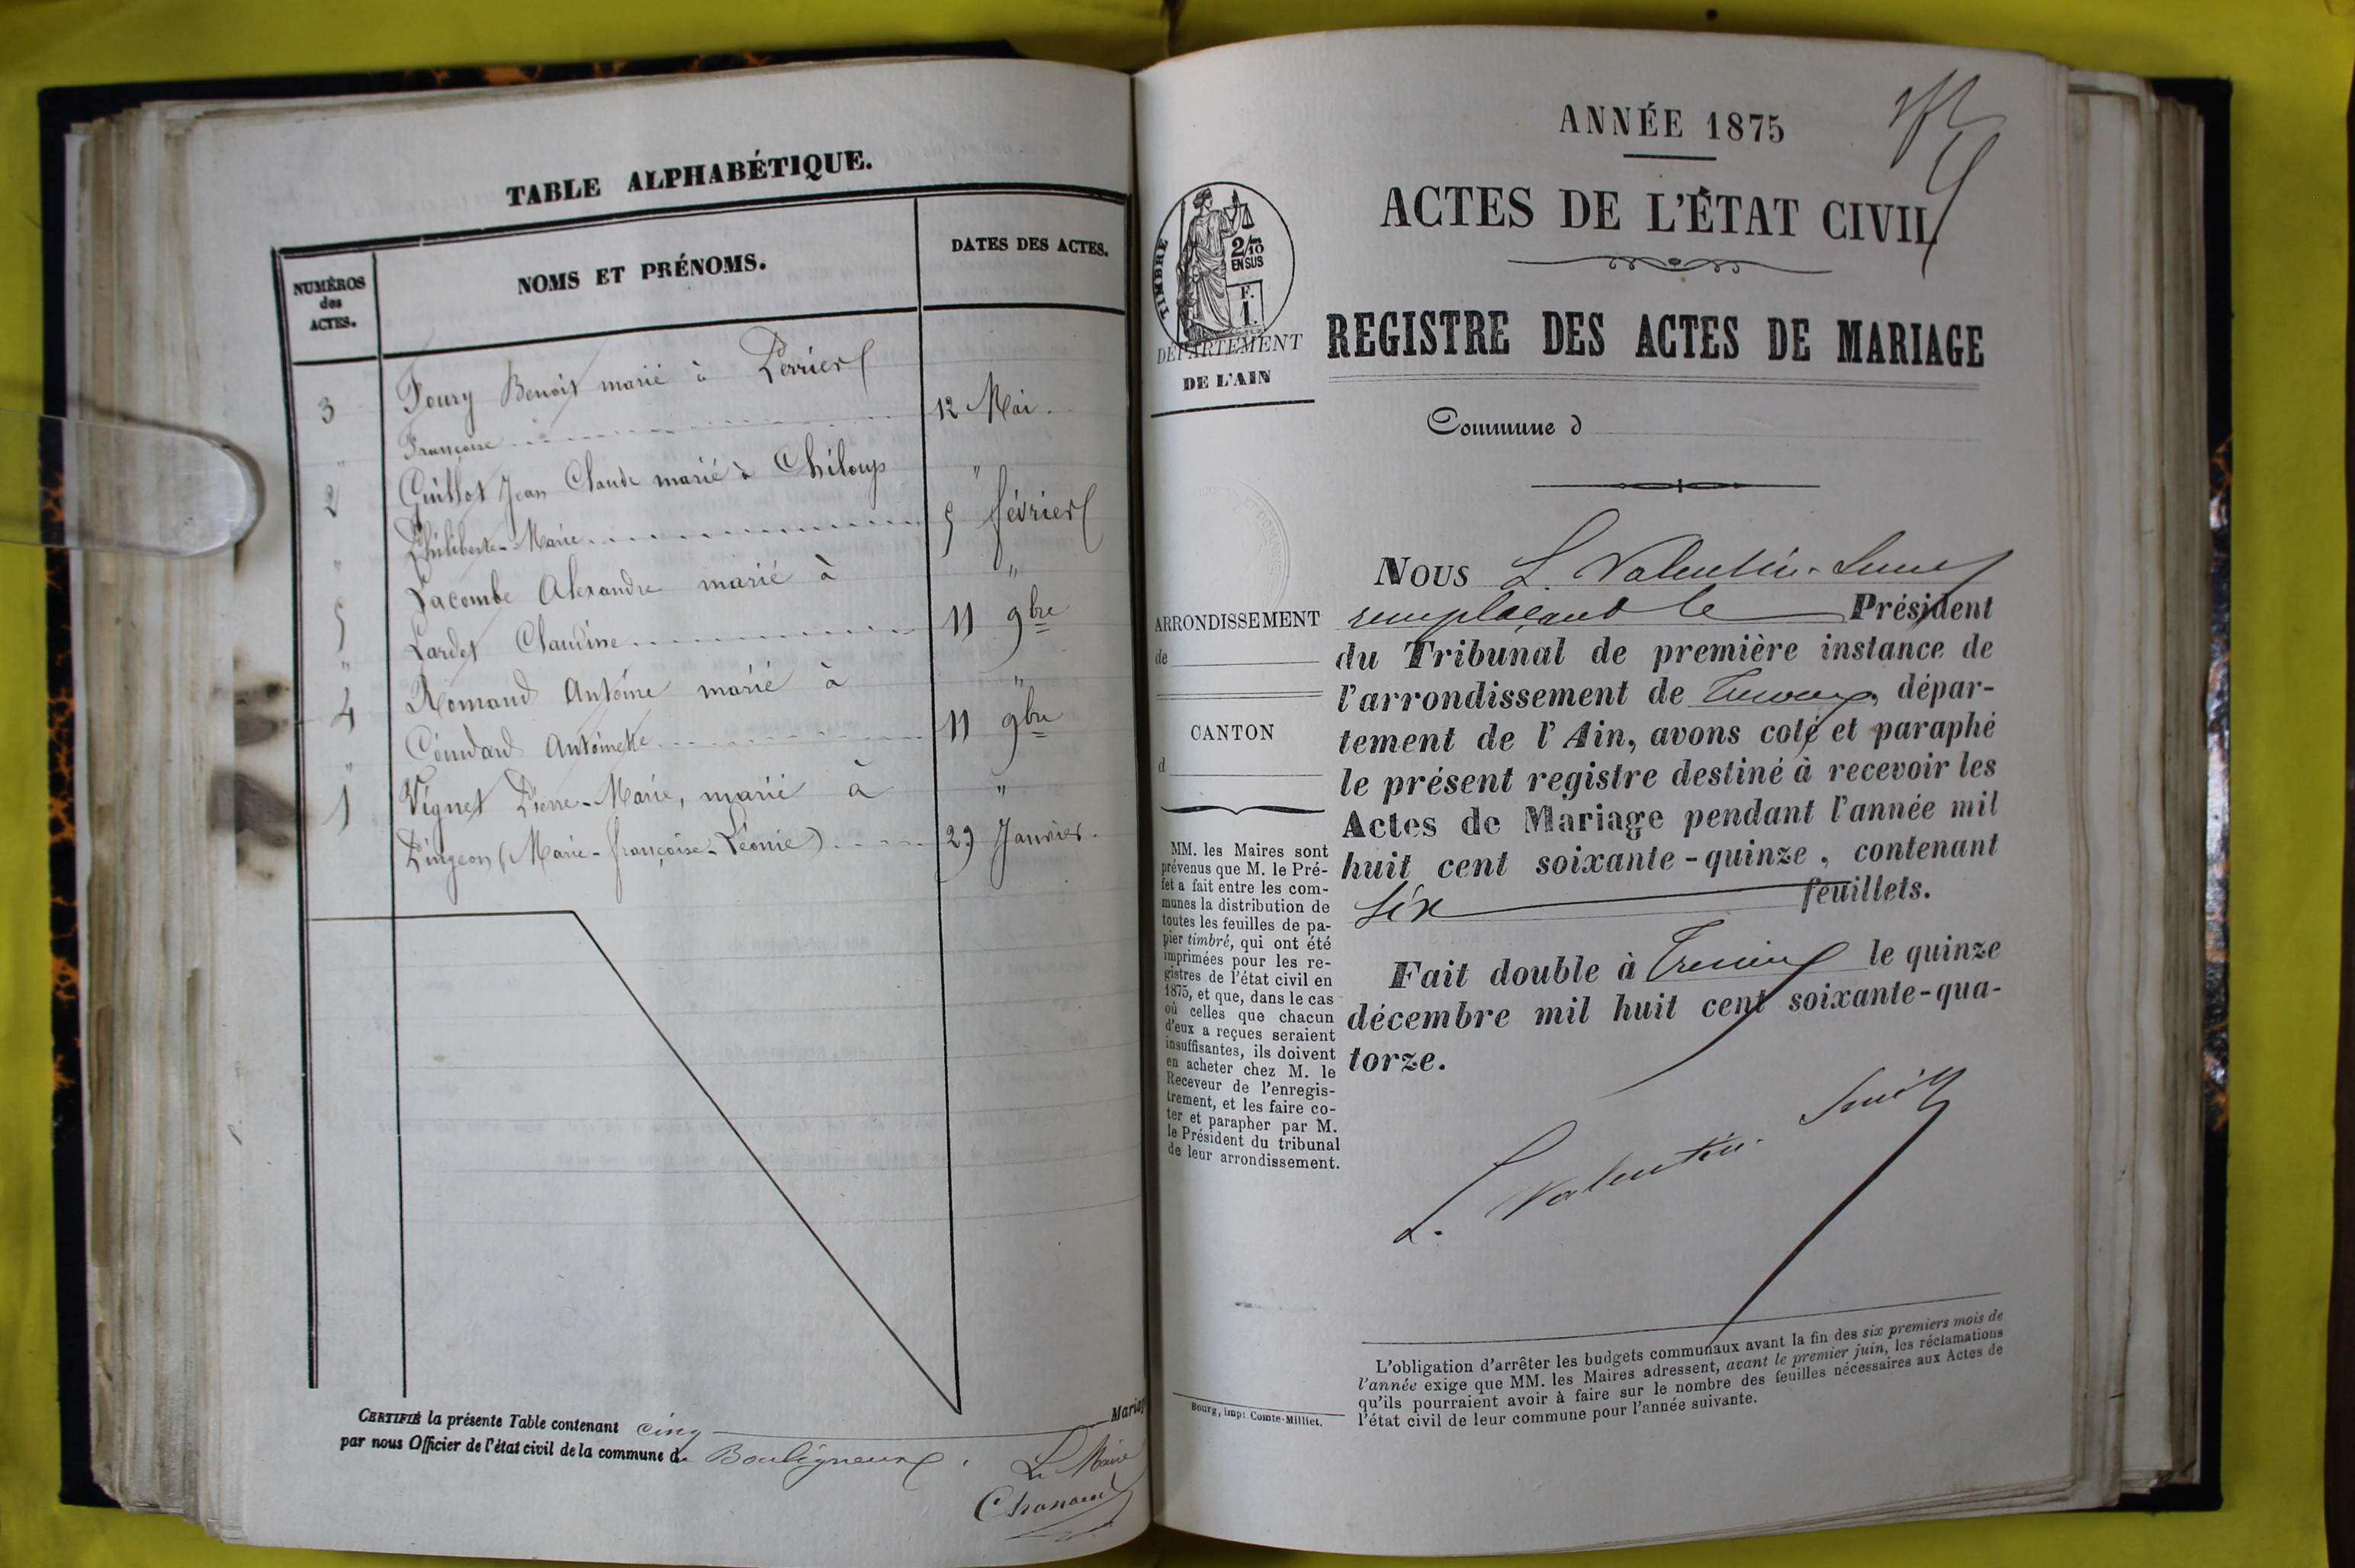 TABLE ALPHABÉTIQUE.
NUMÉROS
des
ACTES.
NOMS ET PRÉNOMS.
DATES DES ACTES.
3 Foury Benoît marié à Perrier
" Françoise 12 Mai.
2 Guillot Jean Claude marié à Chiloup "
" Philiberte-Marie 5 février
5 Lacombe Alexandre marié à "
" Lardet Claudine 11 9bre
4 Romand Antoine marié à "
" Antoinette 11 9bre
1 Vignet Pierre-Marie, marié à "
Pingeon (Marie-françoise-Léonie) 29 Janvier.
CERTIFIÉ la présente Table contenant cinq Mariag
par nous Officier de l'état civil de la commune de Bouligneux.
Le Maire
Chanand
ANNÉE 1875
ACTES DE L'ÉTAT CIVIL
TIMBRE
2/10
EN SUS
F.
1.
REGISTRE DES ACTES DE MARIAGE
DÉPARTEMENT
DE L'AIN
Commune d
ARRONDISSEMENT
de
CANTON
d
MM. les Maires sont
prévenus que M. le Pré-
fet a fait entre les com-
munes la distribution de
toutes les feuilles de pa-
pier timbré, qui ont été
imprimées pour les re-
gistres de l'état civil en
1875, et que, dans le cas
où celles que chacun
d'eux a reçues seraient
insuffisantes, ils doivent
en acheter chez M. le
Receveur de l'enregis-
trement, et les faire co-
ter et parapher par M.
le Président du tribunal
de leur arrondissement.
Bourg, impr. Comte-Milliet.
NOUS L. Valentin-Smith
remplaçant le Président
du Tribunal de première instance de
l'arrondissement de Trévoux, dépar-
tement de l'Ain, avons coté et paraphé
le présent registre destiné à recevoir les
Actes de Mariage pendant l'année mil
huit cent soixante-quinze, contenant
six feuillets.
Fait double à Trévoux le quinze
décembre mil huit cent soixante-qua-
torze.
L. Valentin-Smith
L'obligation d'arrêter les budgets communaux avant la fin des six premiers mois de
l'année exige que MM. les Maires adressent, avant le premier juin, les réclamations
qu'ils pourraient avoir à faire sur le nombre des feuilles nécessaires aux Actes de
l'état civil de leur commune pour l'année suivante.